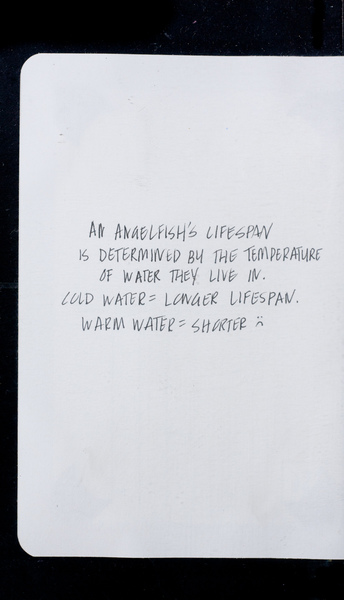 AN ANGELFISH'S LIFESPAN
IS DETERMINED BY THE TEMPERATURE
OF WATER THEY LIVE IN.
COLD WATER = LONGER LIFESPAN.
WARM WATER = SHORTER :(